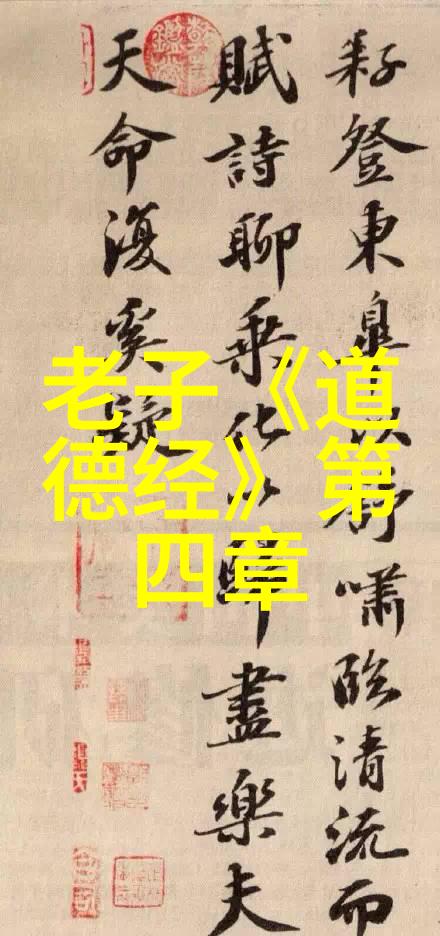 耔登東皋以舒嘯臨清流而
賦詩聊乘化以歸盡樂夫
天命復奚疑
老子《道
德经》第
四章